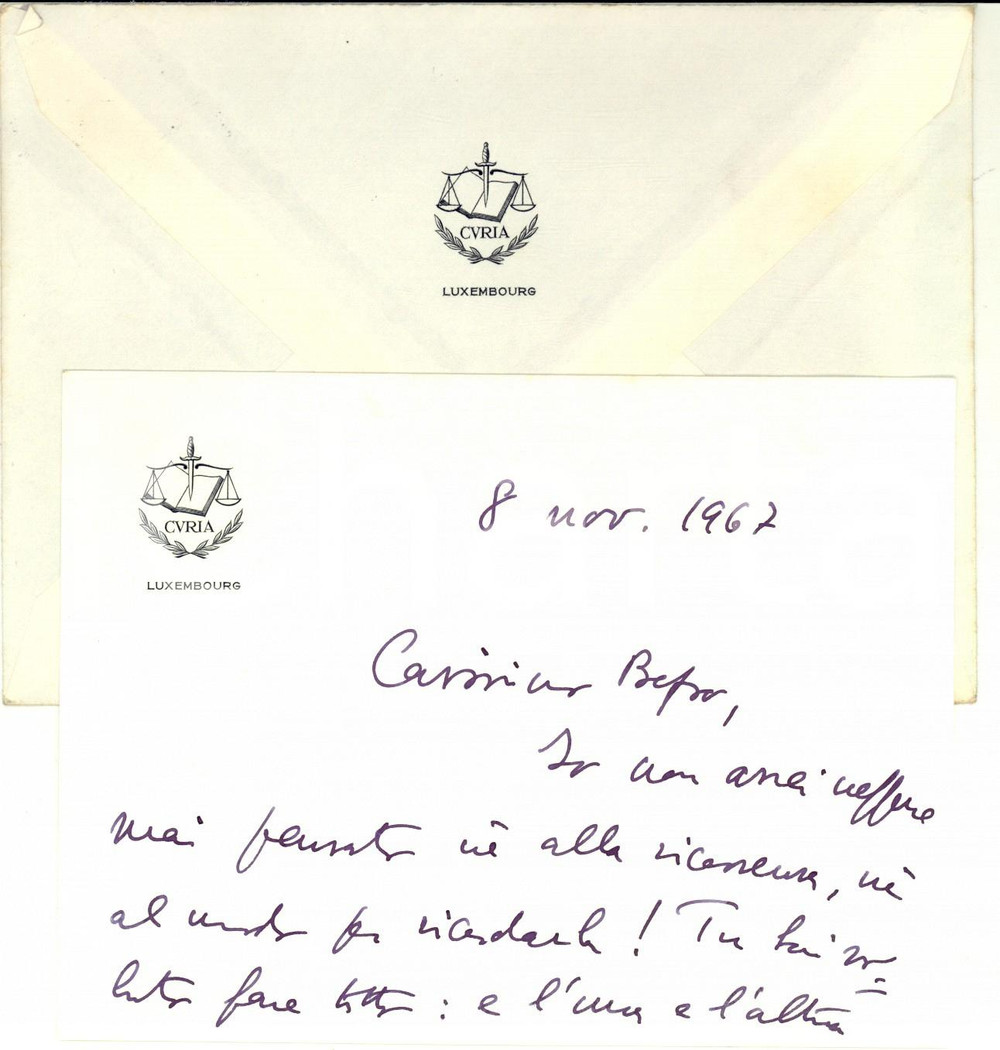 CVRIA
LUXEMBOURG
CVRIA
LUXEMBOURG
8 nov. 1967
Carissimo Beppe,
Io non avrei neppure
mai pensato nè alla ricorrenza, nè
al modo per ricordarla! Tu hai vo=
luto fare tutto: e l'una e l'altra